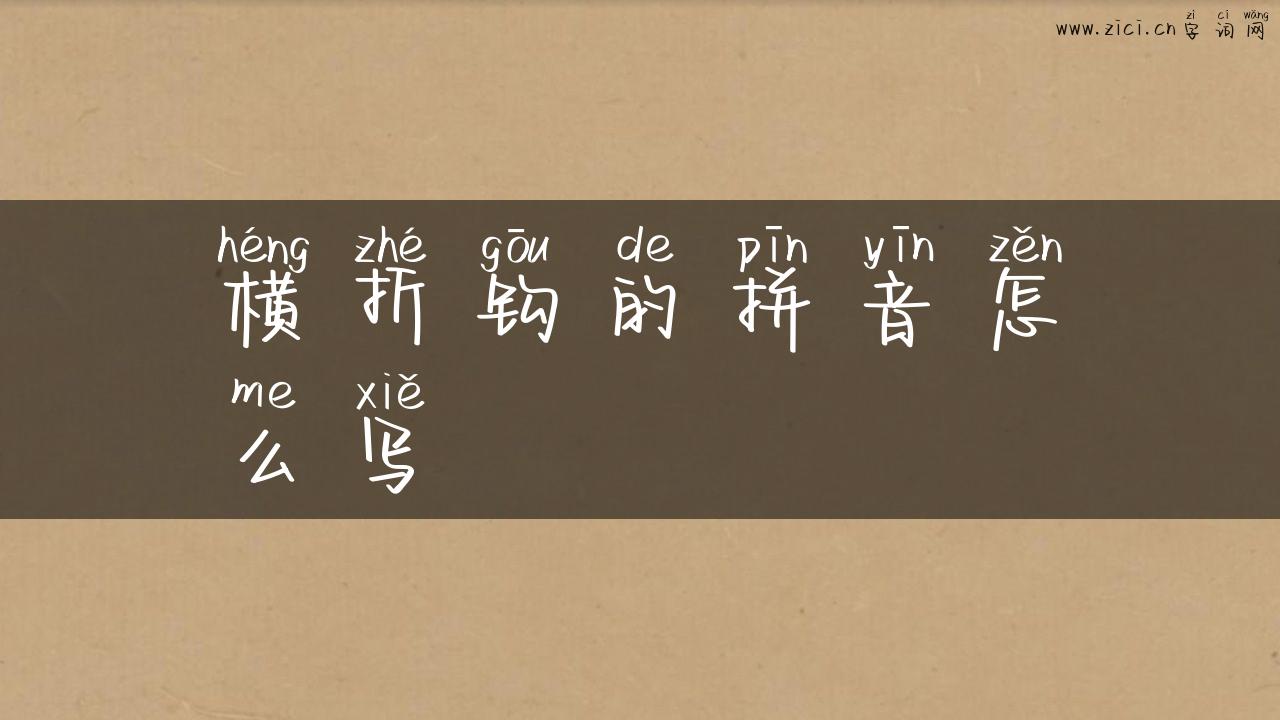 zì cí wǎng
www.zici.cn 字词网
héng zhé gōu de pīn yīn zěn
横折钩的拼音怎
me xiě
么写